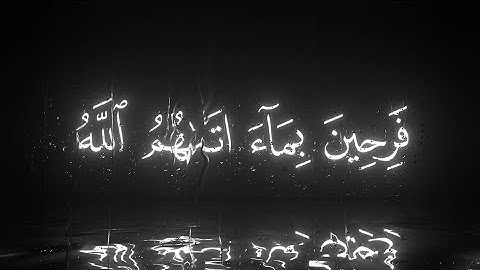 فَرِحِينَ بِمَآءَ اتَىٰهُمُ ٱللَّهُ